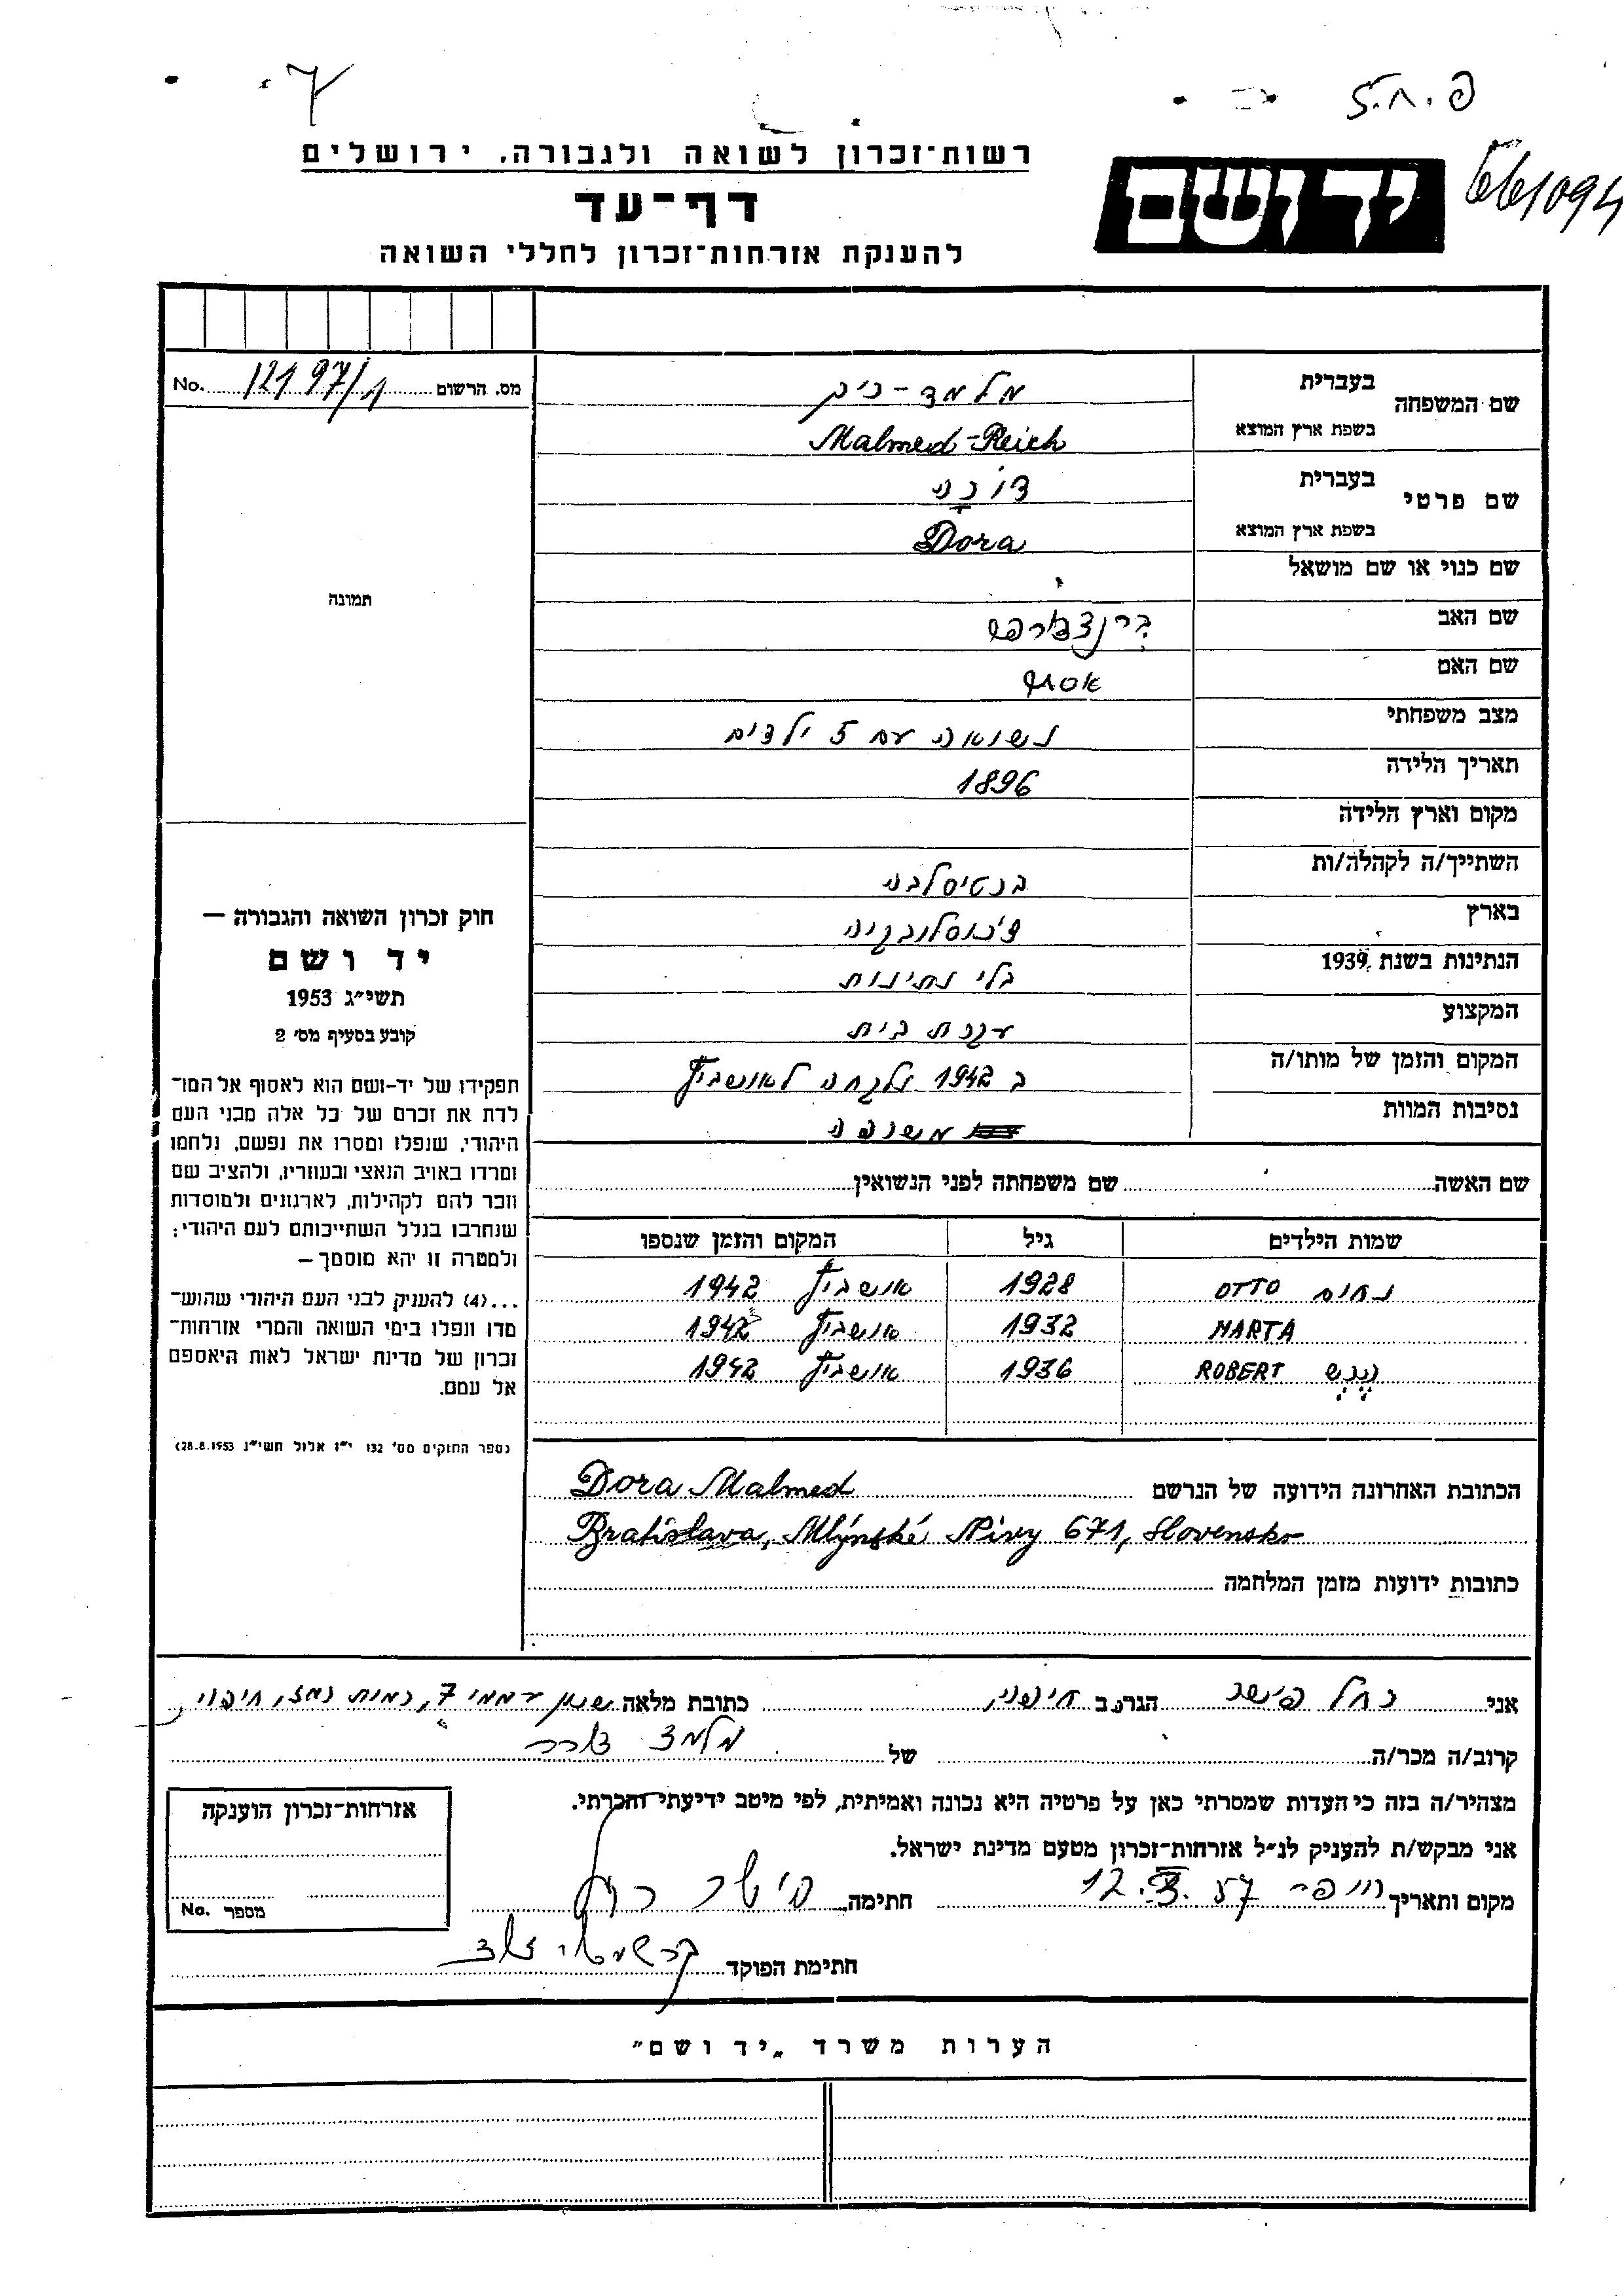 פ.ח.ז
661094
יד ושם
רשות־זכרון לשואה ולגבורה, ירושלים
דף־עד
להענקת אזרחות־זכרון לחללי השואה
מס. הרשום 12197/1 No.
שם המשפחה בעברית מלמד-רייך
בשפת ארץ המוצא Malmed-Reich
שם פרטי בעברית דורה
בשפת ארץ המוצא Dora
שם כנוי או שם מושאל
שם האב
שם האם אסתר
מצב משפחתי נשואה עם 5 ילדים
תאריך הלידה 1896
מקום וארץ הלידה
השתייך/ה לקהלה/ות ברטיסלבה
בארץ צ'כוסלובקיה
הנתינות בשנת 1939 בלי נתינות
המקצוע עקרת בית
המקום והזמן של מותו/ה ב 1942 נלקחה לאושביץ
נסיבות המוות משרפה
תמונה
חוק זכרון השואה והגבורה —
יד ושם
תשי״ג 1953
קובע בסעיף מס׳ 2
תפקידו של יד-ושם הוא לאסוף אל המו־
לדת את זכרם של כל אלה מבני העם
היהודי, שנפלו ומסרו את נפשם, נלחמו
ומרדו באויב הנאצי ובעוזריו, ולהציב שם
וזכר להם לקהילות, לארגונים ולמוסדות
שנחרבו בגלל השתייכותם לעם היהודי;
ולמטרה זו יהא מוסמך —
...(4) להעניק לבני העם היהודי שהוש־
מדו ונפלו בימי השואה והמרי אזרחות־
זכרון של מדינת ישראל לאות היאספם
אל עמם.
(ספר החוקים מס׳ 132 י״ז אלול תשי״ג 28.8.1953)
שם האשה שם משפחתה לפני הנשואין
שמות הילדים גיל המקום והזמן שנספו
נחום OTTO 1928 אושביץ 1942
MARTA 1932 אושביץ 1942
ROBERT 1936 אושביץ 1942
הכתובת האחרונה הידועה של הנרשם Dora Malmed
Bratislava, Mlýnské Nivy 671, Slovensko
כתובות ידועות מזמן המלחמה
אני רחל פישר הגר/ב חיפה, כתובת מלאה שאון דממי 7, רמות רמז, חיפה
קרוב/ה מכר/ה של מלמד דורה
מצהיר/ה בזה כי העדות שמסרתי כאן על פרטיה היא נכונה ואמיתית, לפי מיטב ידיעתי והכרתי.
אני מבקש/ת להעניק לנ״ל אזרחות־זכרון מטעם מדינת ישראל.
מקום ותאריך חיפה 57 חתימה פישר רחל
חתימת הפוקד
אזרחות־זכרון הוענקה
מספר No.
הערות משרד „יד ושם״